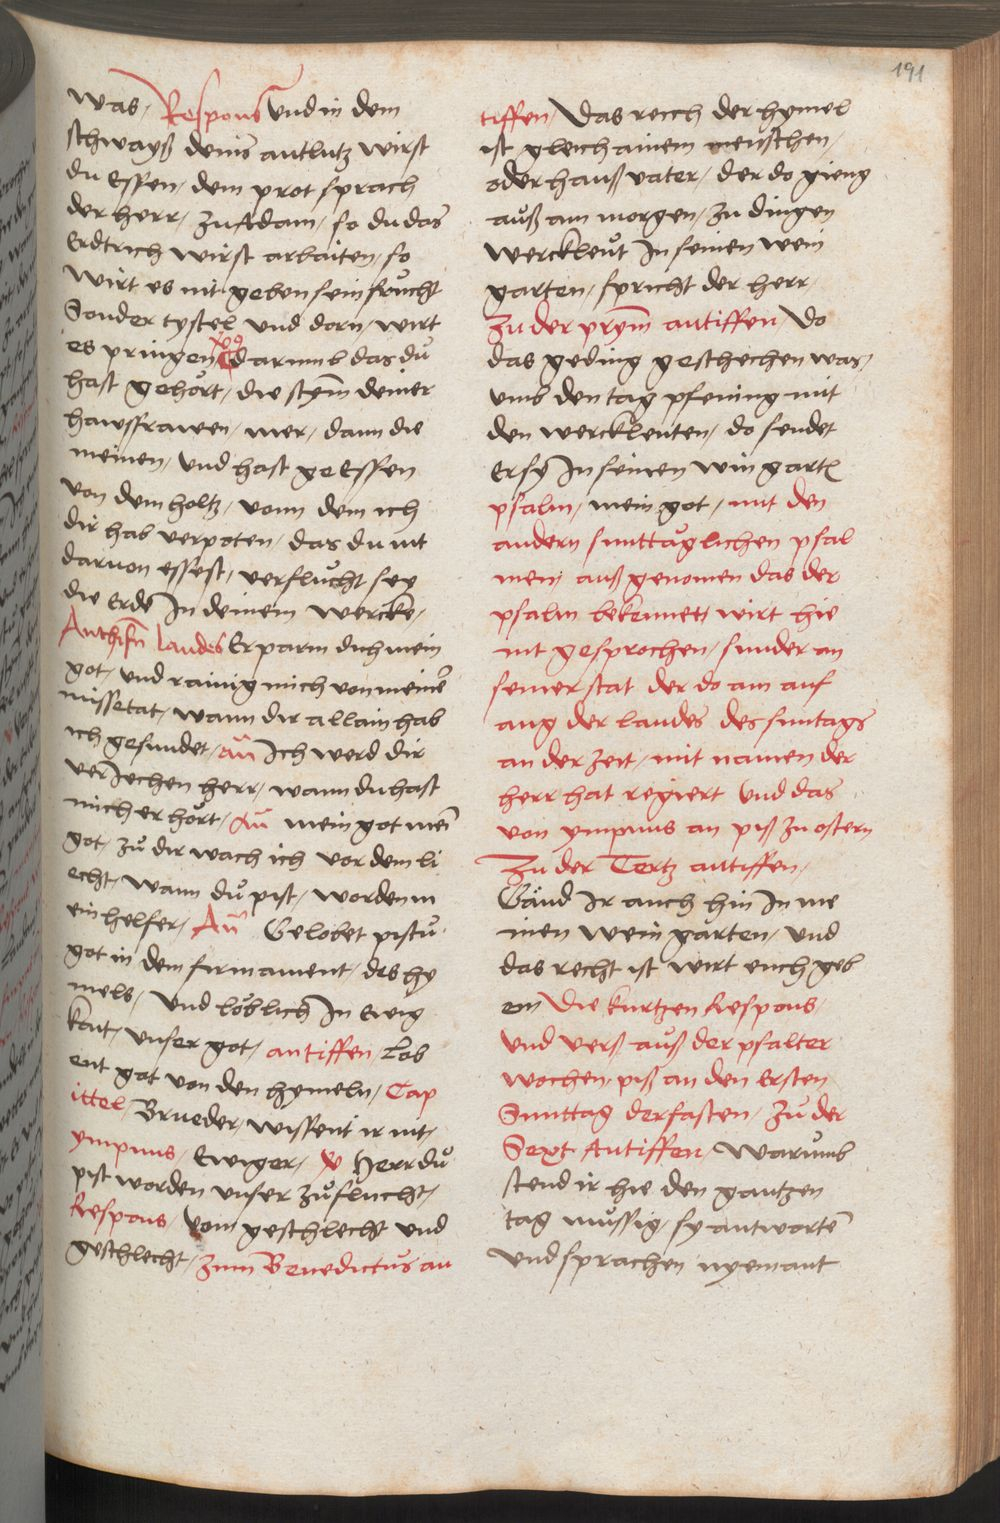 191
was / Respons Vnd in dem
schwayß deins antlutz wirst
du Essen / dein prot sprach
der herr / zu Adam / so du das
Erdtrich wirst arbaiten / so
wirt es nit geben sein frücht
Sonder tystel vnd dorn / wirt
es pringen darumb das dü
hast gehört / die stym deiner
hawsfrawen / mer / dann die
meinen / vnd hast geEssen
von dem holtz / vonn dem ich
dir hab verpoten / das du nit
daruon essest / verflücht sey
die Erde In deinem wercke /
Laudes Erparm dich mein
got / vnd rainig mich von meinē
missetat / wann dir allain hab
ich gesundet / añ Ich werd dir
veriechen herr / wann du hast
mich erhört / Añ mein got mei
got / zů dir wach ich vor dem li
echt / wann dü pist / worden m
ein helfer / Añ Gelobet pistü
got in dem firmament / des hy
mels / vnd löblich In Ewig
kait / vnser got / antiffen / Lob
ent got von den hymeln / Cap
ittel / Brueder / wissent ir nit /
ympnus / Ewiger / Herr dü
pist worden vnser zůflücht /
Respons / vom geschlecht vnd
geschlecht / zum Benedictus an
tiffen / Das reich der hymel
ist gleich ainem menschen /
oder haußvater / der do gieng
auß am morgen / zu dingen
werckleüt In seinen wein
garten / spricht der herr /
Zu der prym antiffen / Do
das geding geschechen was /
vmb den tag pfening mit
den werckleuten / do sendet
Er sy In seinen wingartē
psalm / mein got / mit den
andern sunttäglichen psal
men / auß genomen das der
psalm bekennet wirt hie
nit gesprochen / sunder an
seiner stat der do am anf
ang der laudes des suntags
an der zeit / mit namen der
herr hat regiert Vnd das
von ympnus an piß zu ostern
Zu der Tertz antiffen /
Gänd Ir auch hin In me
inen wein garten / vnd
das recht ist wirt euch geb
en Die kurtzen Respons /
Vnd verß auß der psalter
wochen / piß an den Ersten
Sunttag der fasten / Zů der
Sext Antiffen / Warumb
stend ir hie den gantzen
tag müssig / sy antwortē
vnd sprachen nyemant